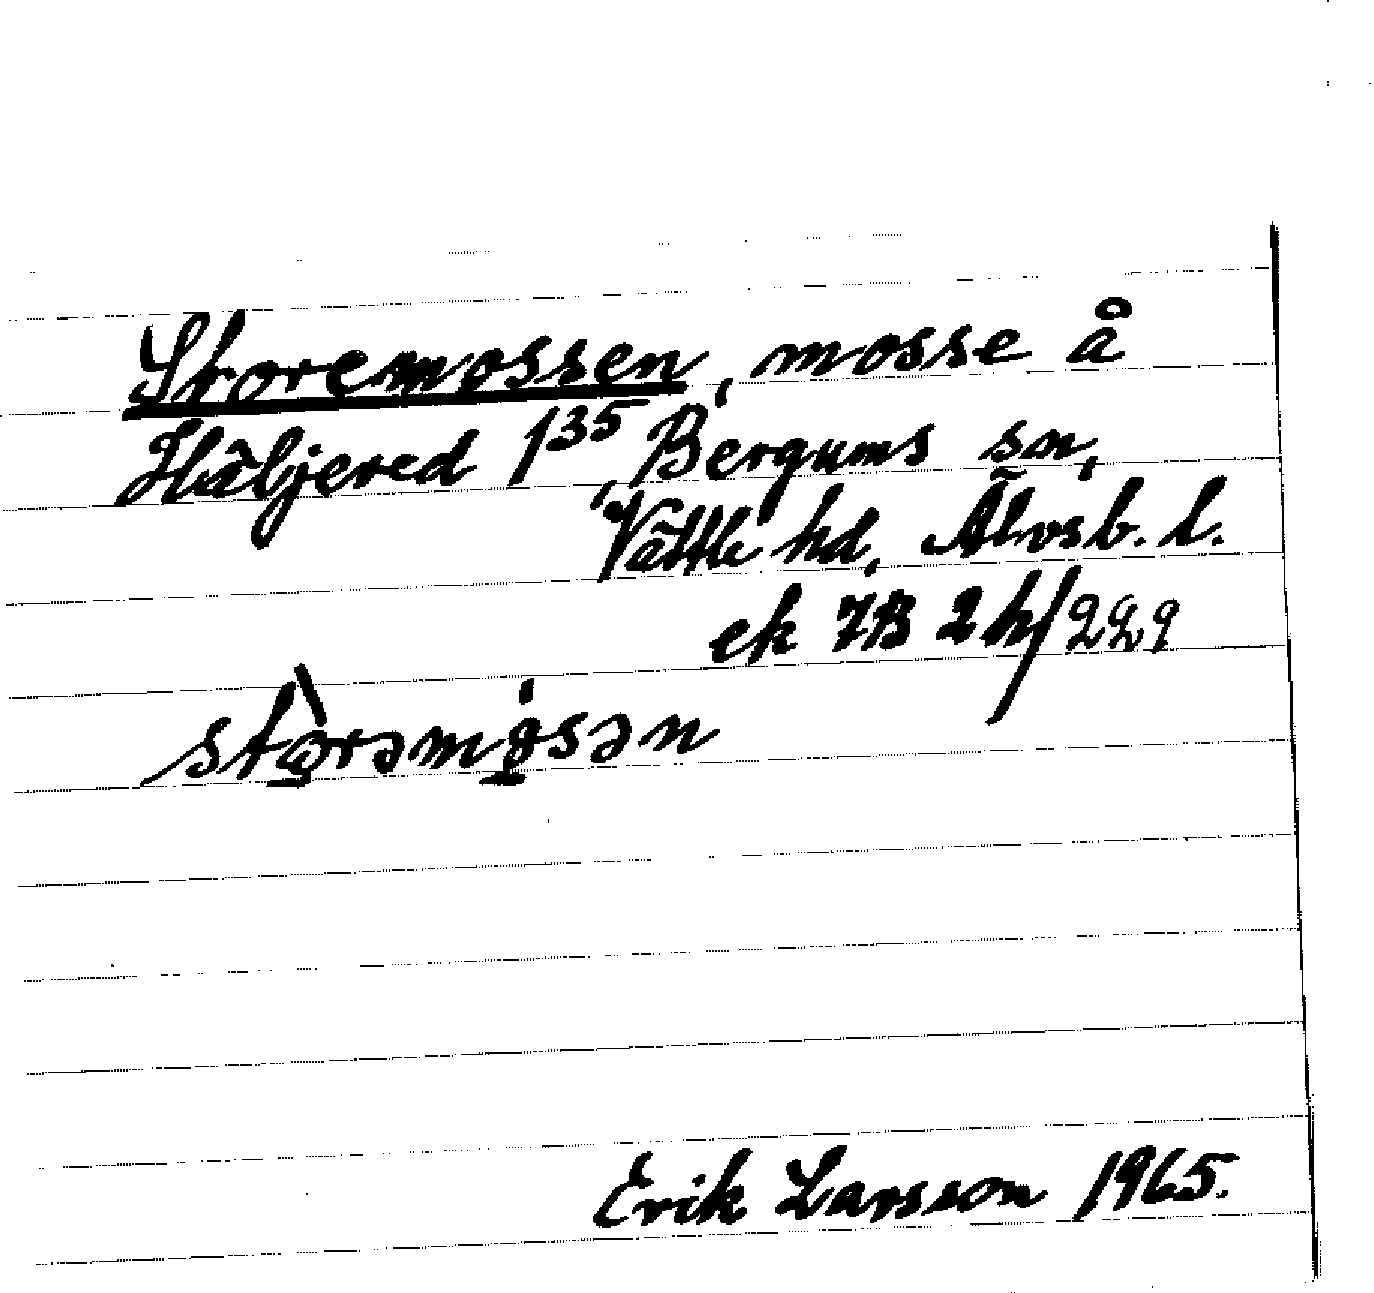 Storemossen, mosse å
Häljered 1³⁵, Bergums sn,
Vättle hd, Älvsb. l.
ek 7B 2h/229
stòrəmósən
Erik Larsson 1965.